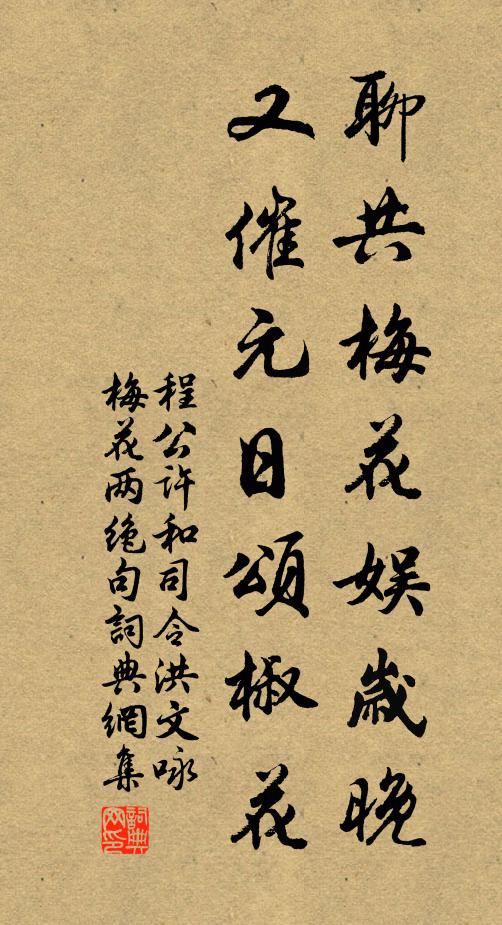 聊共梅花娱歳晚
又催元日頌椒花
程公许和司令洪文咏
梅花两绝句詞典網集
詞典网印